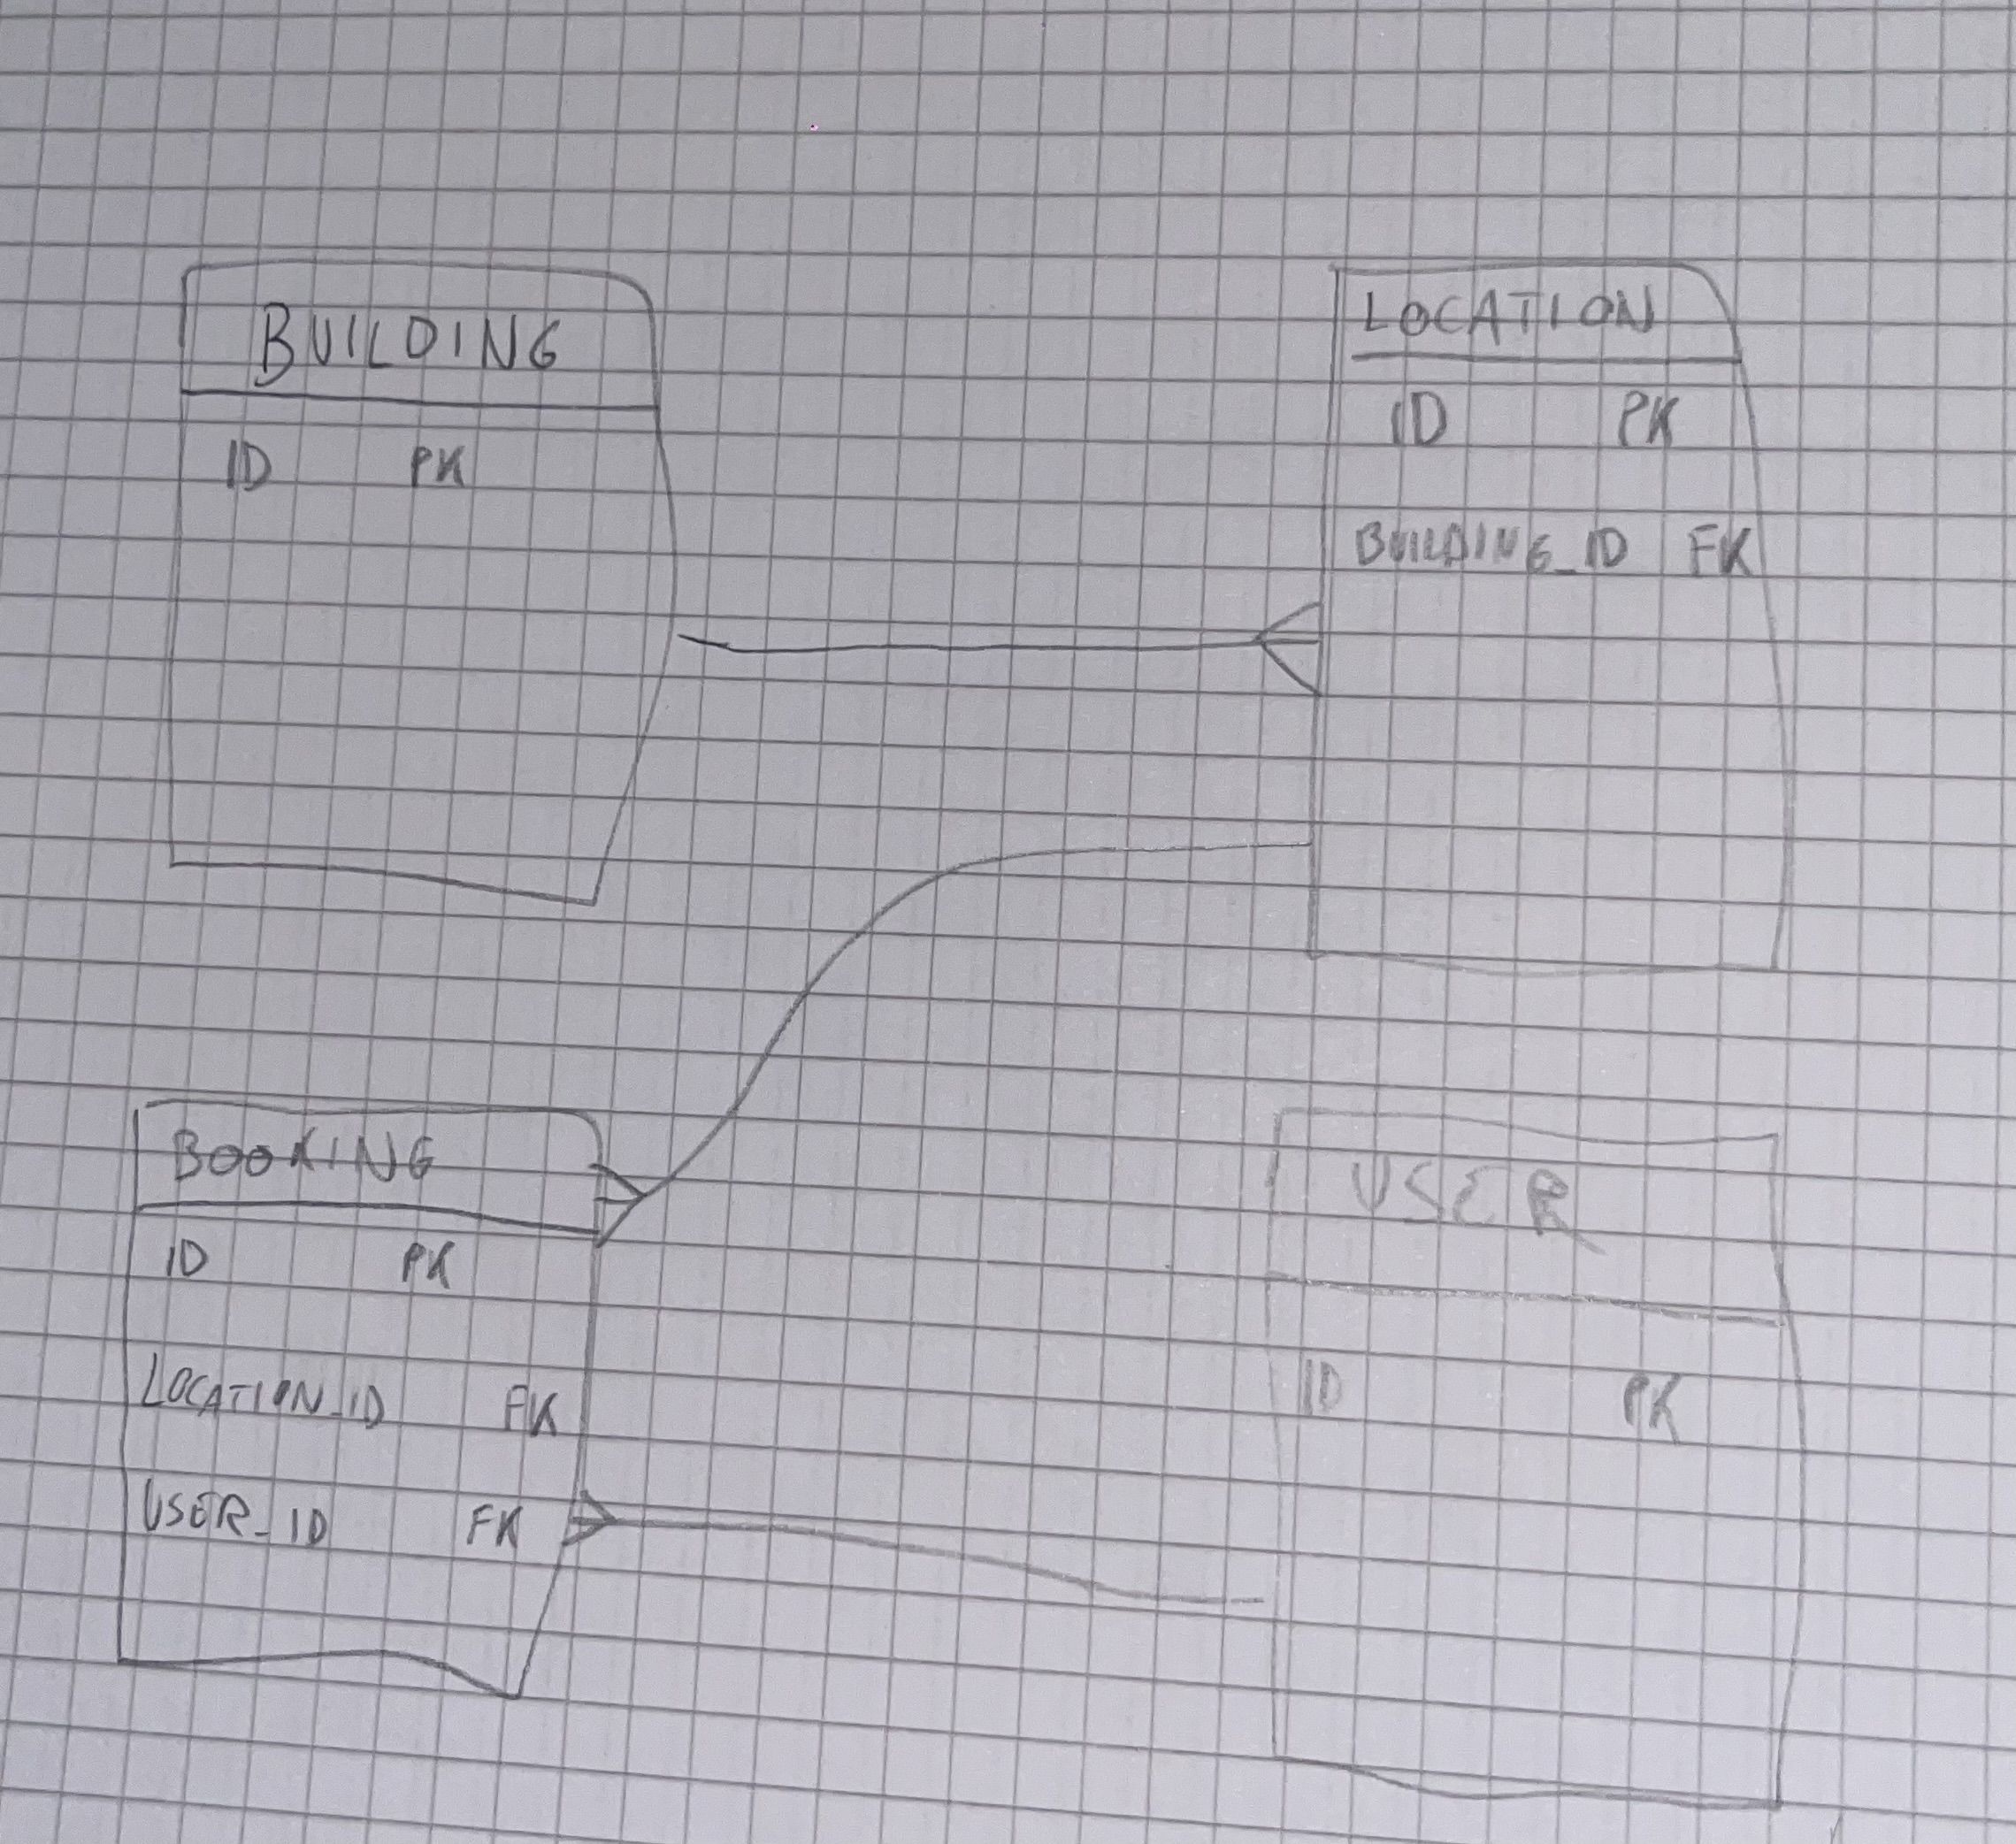 BUILDING
ID PK
LOCATION
ID PK
BUILDING_ID FK
BOOKING
ID PK
LOCATION_ID FK
USER_ID FK
USER
ID PK